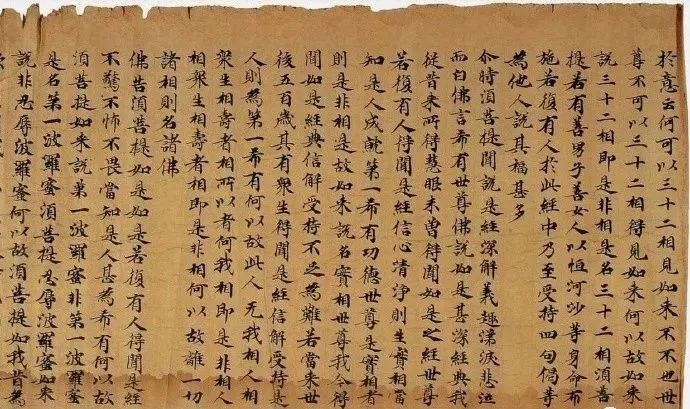 於意云何可以三十二相見如來不不也世
尊不可以三十二相得見如來何以故如來
說三十二相即是非相是名三十二相須菩
提若有善男子善女人以恒河沙等身命布
施若復有人於此經中乃至受持四句偈等
為他人說其福甚多
尒時須菩提聞說是經深解義趣涕淚悲泣
而白佛言希有世尊佛說如是甚深經典我
從昔來所得慧眼未曾得聞如是之經世尊
若復有人得聞是經信心清淨則生實相當
知是人成就第一希有功德世尊是實相者
則是非相是故如來說名實相世尊我今得
聞如是經典信解受持不足為難若當來世
後五百歲其有眾生得聞是經信解受持是
人則為第一希有何以故此人无我相人相
眾生相壽者相所以者何我相即是非相人
相眾生相壽者相即是非相何以故離一切
諸相則名諸佛
佛告須菩提如是如是若復有人得聞是經
不驚不怖不畏當知是人甚為希有何以故
須菩提如來說第一波羅蜜非第一波羅蜜
是名第一波羅蜜須菩提忍辱波羅蜜如來
說非忍辱波羅蜜何以故須菩提如我昔為